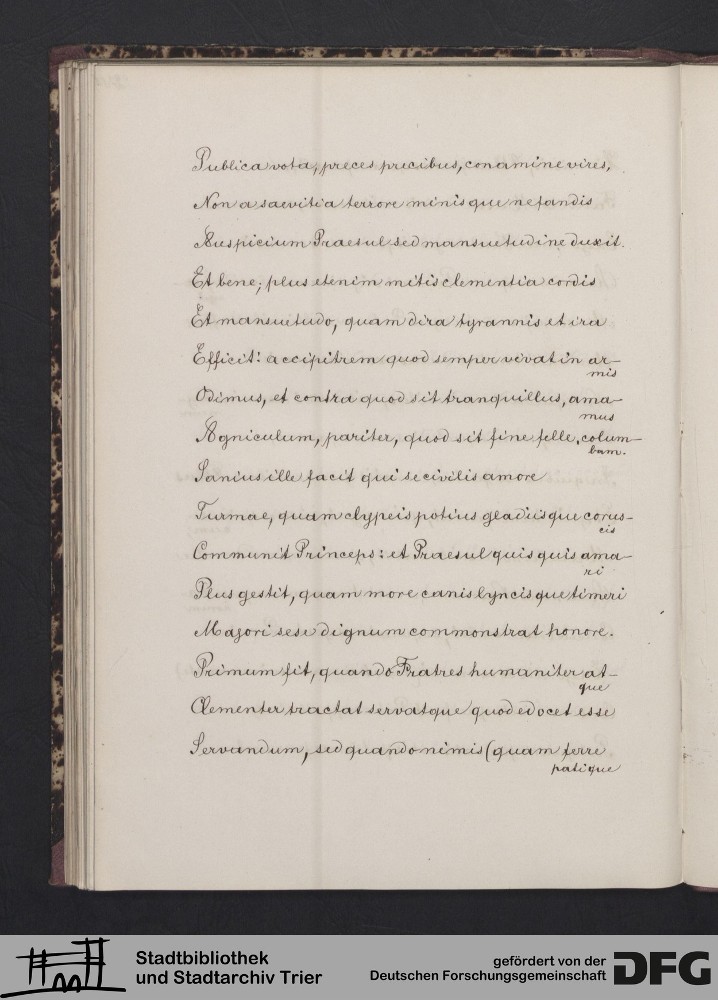 Publica vota, preces precibus, conamine vires,
Non a saevitia terrore minisque nefandis
Auspicium Praesul sed mansuetudine duxit.
Et bene; plus etenim mitis clementia cordis
Et mansuetudo, quam dira tyrannis et ira
Efficit: accipitrem quod semper vivat in ar-
mis
Odimus, et contra quod sit tranquillus, ama-
mus
Agniculum, pariter, quod sit sine felle, colum-
bam.
Sanius ille facit qui se civilis amore
Turmae, quam clypeis potius gladiisque corus-
cis
Communit Princeps: et Praesul quisquis ama-
ri
Plus gestit, quam more canis lyncisque timeri
Majori sese dignum commonstrat honore.
Primum fit, quando Fratres humaniter at-
que
Clementer tractat servatque quod edocet esse
Servandum, sed quando nimis (quam ferre
patique
Stadtbibliothek
und Stadtarchiv Trier
gefördert von der
Deutschen Forschungsgemeinschaft
DFG